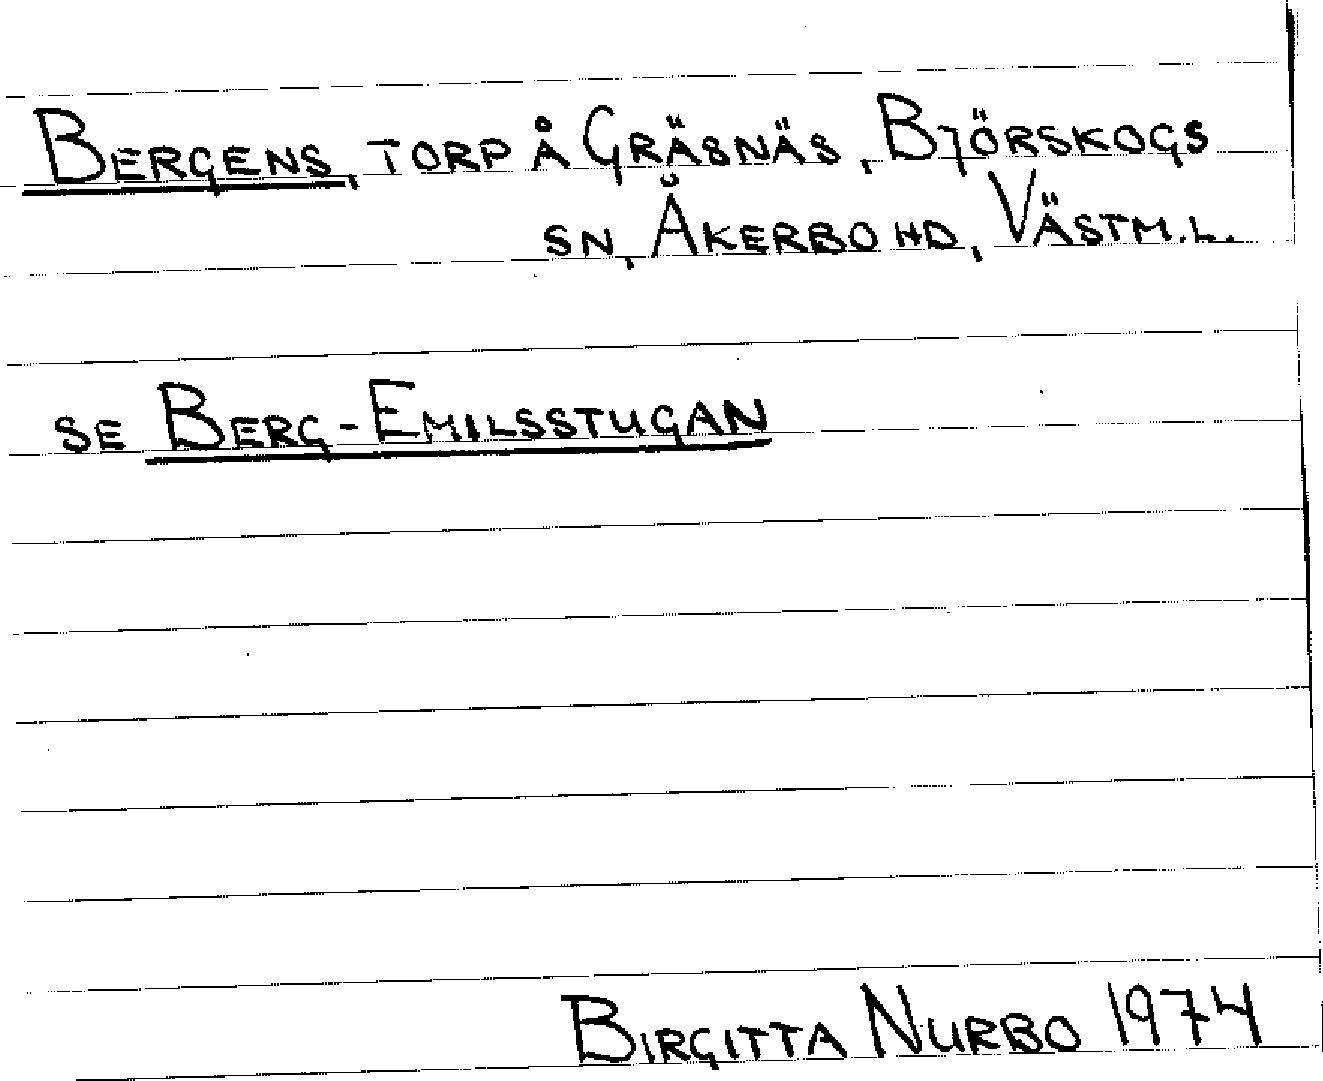 BERGENS, TORP Å GRÄSNÄS, BJÖRSKOGS
SN, ÅKERBO HD, VÄSTM.L.
SE BERG-EMILSSTUGAN
BIRGITTA NURBO 1974